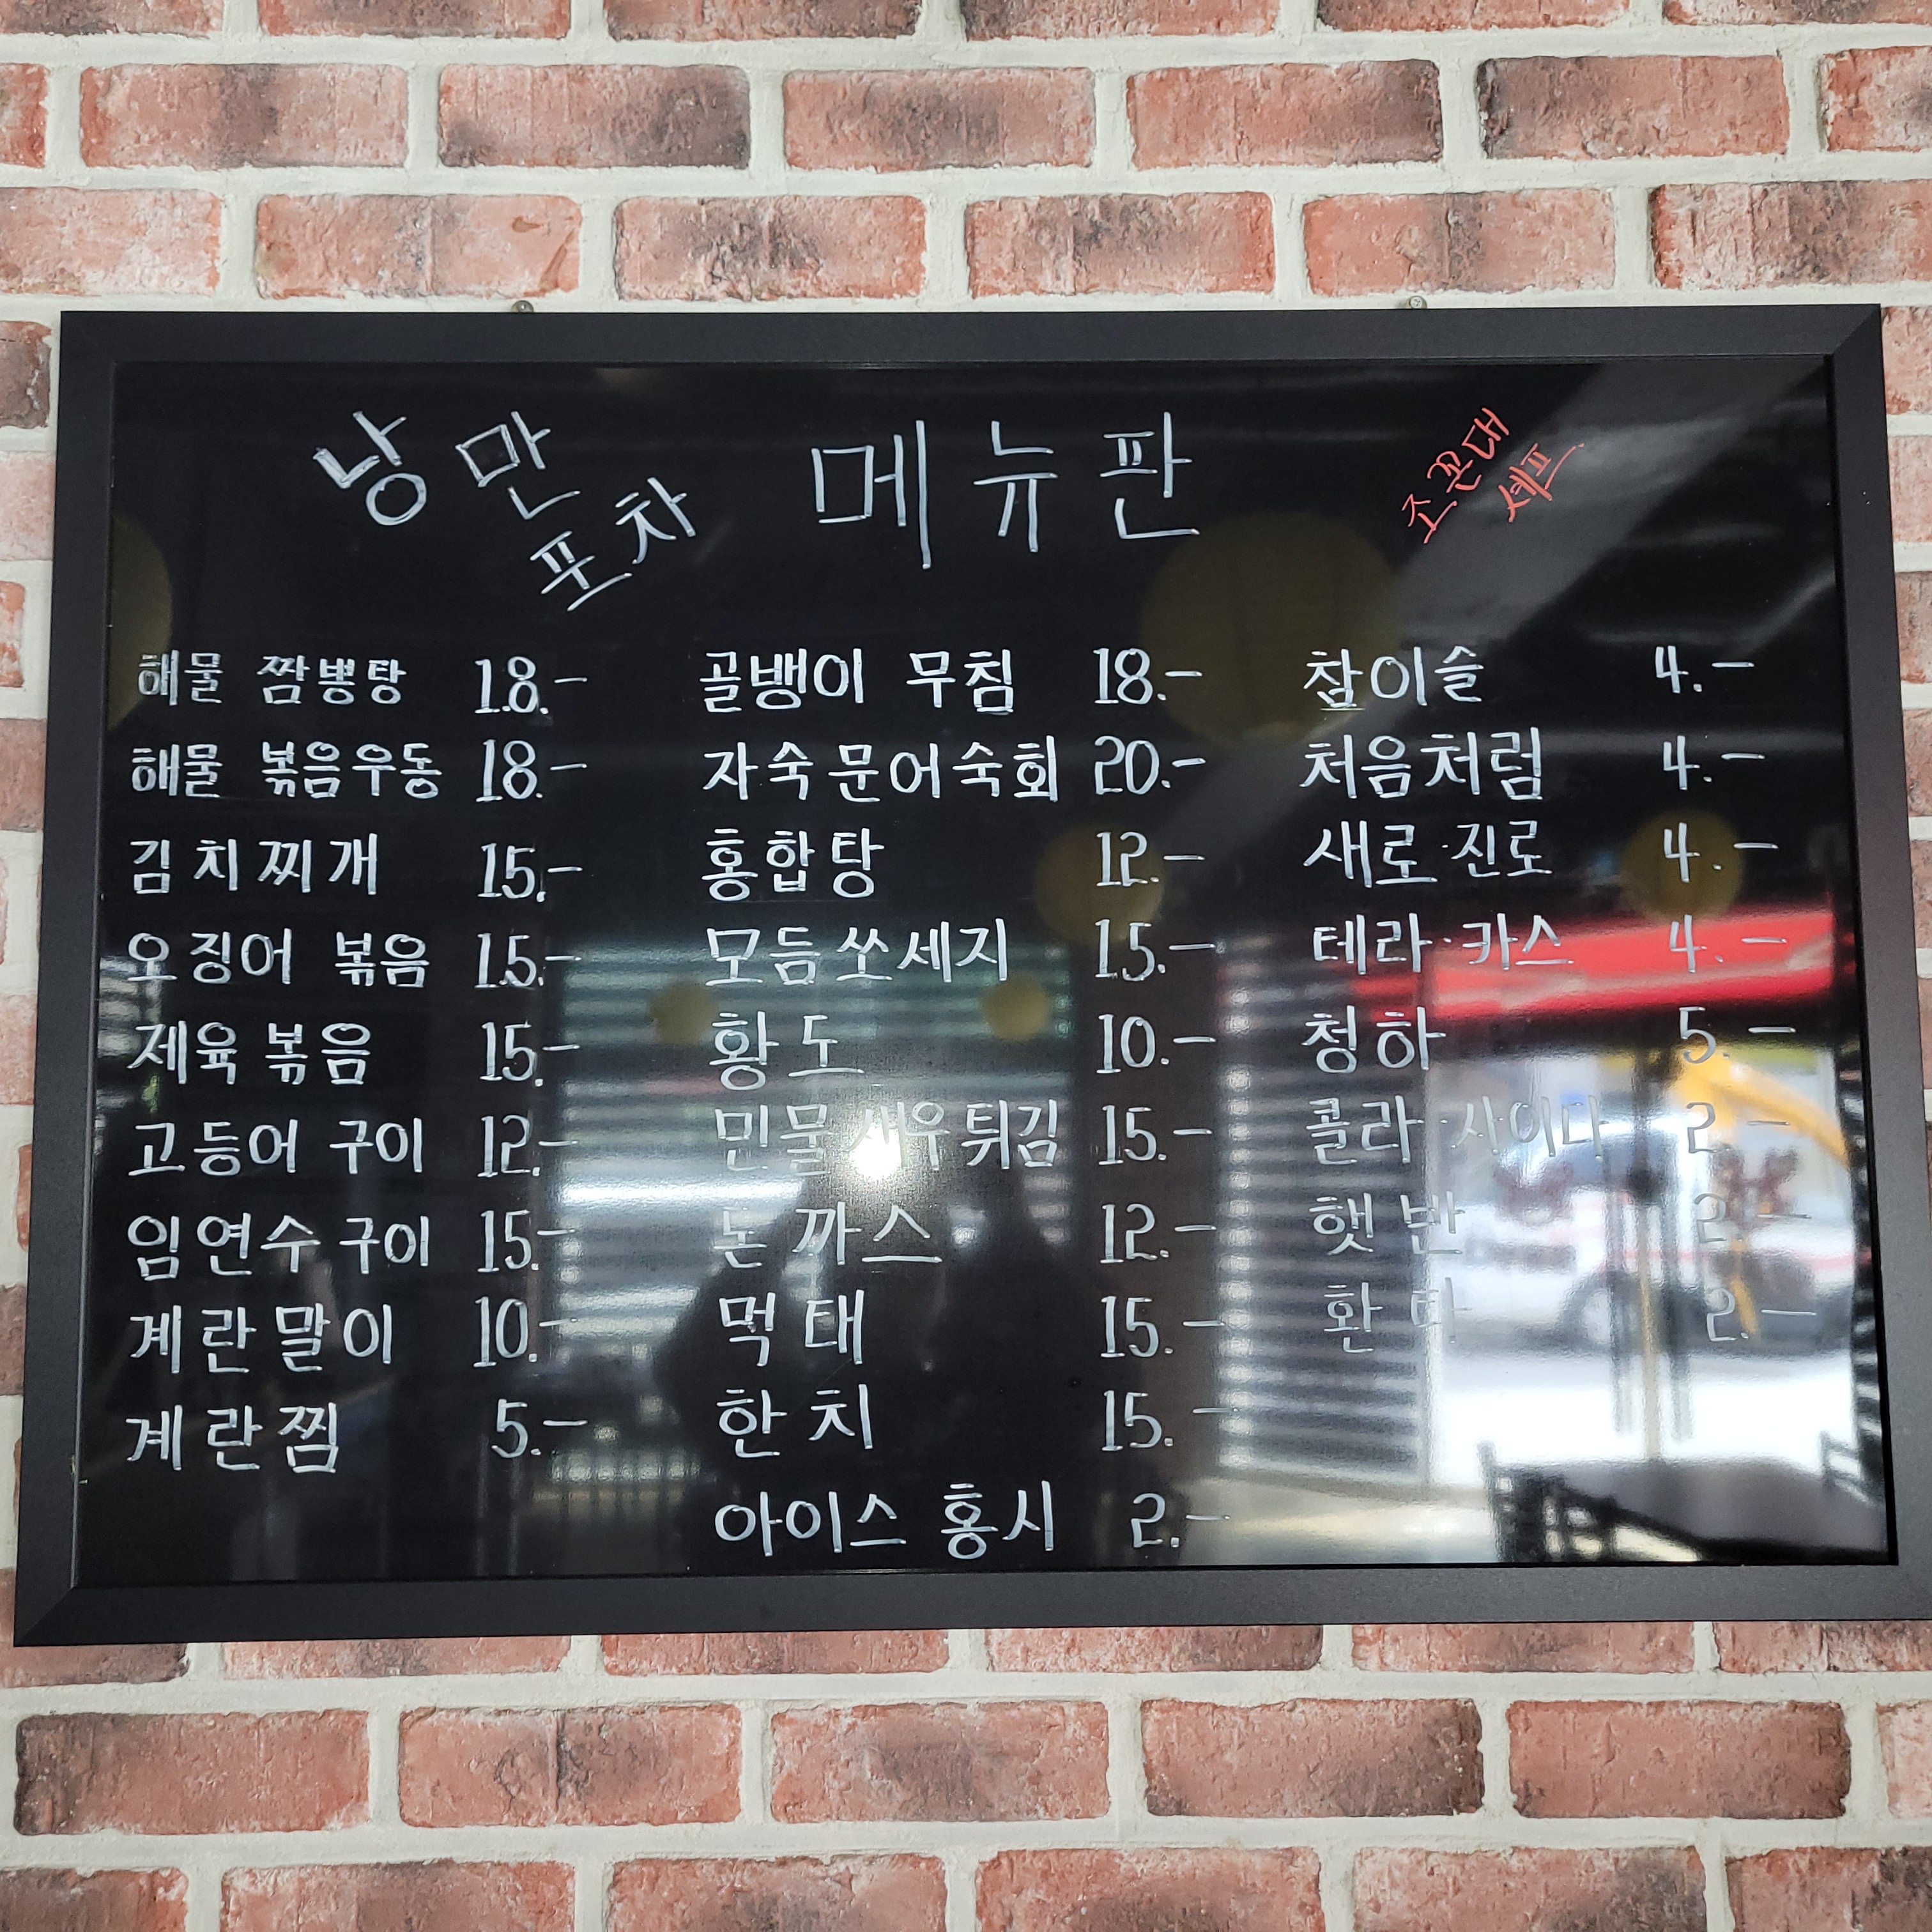 낭만
포차
메뉴판
조꼰대
셰프
해물 짬뽕탕 18.-
해물 볶음우동 18.-
김치찌개 15.-
오징어 볶음 15.-
제육볶음 15.-
고등어 구이 12.-
임연수구이 15.-
계란말이 10.-
계란찜 5.-
골뱅이 무침 18.-
자숙문어숙회 20.-
홍합탕 12.-
모듬쏘세지 15.-
황도 10.-
민물새우튀김 15.-
돈까스 12.-
먹태 15.-
한치 15.-
아이스 홍시 2.-
참이슬 4.-
처음처럼 4.-
새로·진로 4.-
테라·카스 4.-
청하 5.-
콜라·사이다 2.-
햇반 2.-
환타 2.-